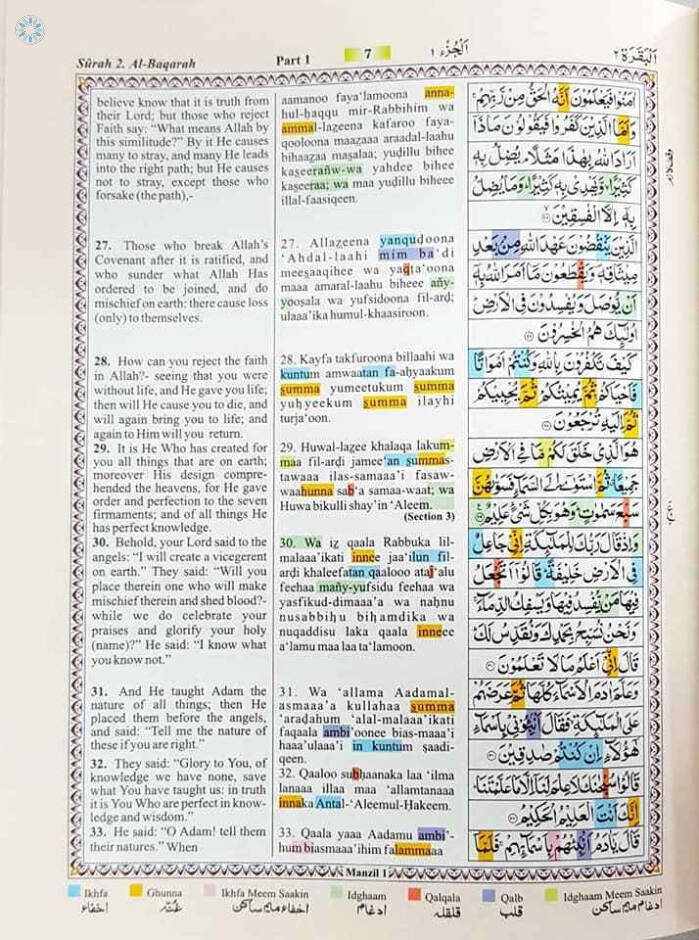 Sûrah 2. Al-Baqarah
Part 1
7
اَلْجُزْء ١
اَلْبَقَرَة ٢
believe know that it is truth from
their Lord; but those who reject
Faith say: “What means Allah by
this similitude?” By it He causes
many to stray, and many He leads
into the right path; but He causes
not to stray, except those who
forsake (the path),-
27. Those who break Allah’s
Covenant after it is ratified, and
who sunder what Allah Has
ordered to be joined, and do
mischief on earth: there cause loss
(only) to themselves.
28. How can you reject the faith
in Allah?- seeing that you were
without life, and He gave you life;
then will He cause you to die, and
will again bring you to life; and
again to Him will you return.
29. It is He Who has created for
you all things that are on earth;
moreover His design compre-
hended the heavens, for He gave
order and perfection to the seven
firmaments; and of all things He
has perfect knowledge.
30. Behold, your Lord said to the
angels: “I will create a vicegerent
on earth.” They said: “Will you
place therein one who will make
mischief therein and shed blood?-
while we do celebrate your
praises and glorify your holy
(name)?” He said: “I know what
you know not.”
31. And He taught Adam the
nature of all things; then He
placed them before the angels,
and said: “Tell me the nature of
these if you are right.”
32. They said: “Glory to You, of
knowledge we have none, save
what You have taught us: in truth
it is You Who are perfect in know-
ledge and wisdom.”
33. He said: “O Adam! tell them
their natures.” When
aamanoo faya‘lamoona anna-
hul-ḥaqqu mir-Rabbihim wa
ammal-lazeena kafaroo faya-
qooloona maazaaa araadal-laahu
bihaazaa maṣalaa; yuḍillu bihee
kaṣeerañw-wa yahdee bihee
kaṣeeraa; wa maa yuḍillu biheee
illal-faasiqeen.
27. Allazeena yanquḍoona
‘Ahdal-laahi mim ba‘di
meeṣaaqihee wa yaqṭa‘oona
maaa amaral-laahu biheee añy-
yooṣala wa yufsidoona fil-arḍ;
ulaaa’ika humul-khaasiroon.
28. Kayfa takfuroona billaahi wa
kuntum amwaatan fa-aḥyaakum
summa yumeetukum summa
yuḥyeekum summa ilayhi
turja‘oon.
29. Huwal-lazee khalaqa lakum-
maa fil-arḍi jamee‘an summas-
tawaaa ilas-samaaa’i fasaw-
waahunna sab‘a samaa-waat; wa
Huwa bikulli shay’in ‘Aleem.
(Section 3)
30. Wa iz qaala Rabbuka lil-
malaaa’ikati innee jaa‘ilun fil-
arḍi khaleefatan qaalooo ataj‘alu
feehaa mañy-yufsidu feehaa wa
yasfikud-dimaaa’a wa naḥnu
nusabbiḥu biḥamdika wa
nuqaddisu laka qaala inneee
a‘lamu maa laa ta‘lamoon.
31. Wa ‘allama Aadamal-
asmaaa’a kullahaa summa
‘araḍahum ‘alal-malaaa’ikati
faqaala ambi’oonee bias-maaa’i
haaa’ulaaa’i in kuntum ṣaadi-
qeen.
32. Qaaloo subḥaanaka laa ‘ilma
lanaaa illaa maa ‘allamtanaaa
innaka Antal-‘Aleemul-Ḥakeem.
33. Qaala yaaa Aadamu ambi’-
hum biasmaaa’ihim falammaaa
اٰمَنُوْا فَيَعْلَمُوْنَ اَنَّهُ الْحَقُّ مِنْ رَّبِّهِمْ ۚ
وَاَمَّا الَّذِيْنَ كَفَرُوْا فَيَقُوْلُوْنَ مَاذَاۤ
اَرَادَ اللّٰهُ بِهٰذَا مَثَلًا ۘ يُضِلُّ بِهٖ
كَثِيْرًا ۙ وَّيَهْدِىْ بِهٖ كَثِيْرًا ؕ وَمَا يُضِلُّ
بِهٖۤ اِلَّا الْفٰسِقِيْنَ ۙ
الَّذِيْنَ يَنْقُضُوْنَ عَهْدَ اللّٰهِ مِنْۢ بَعْدِ
مِيْثَاقِهٖ ۪ وَيَقْطَعُوْنَ مَاۤ اَمَرَ اللّٰهُ بِهٖۤ
اَنْ يُّوْصَلَ وَيُفْسِدُوْنَ فِى الْاَرْضِ ؕ
اُولٰٓئِكَ هُمُ الْخٰسِرُوْنَ
كَيْفَ تَكْفُرُوْنَ بِاللّٰهِ وَكُنْتُمْ اَمْوَاتًا
فَاَحْيَاكُمْ ۚ ثُمَّ يُمِيْتُكُمْ ثُمَّ يُحْيِيْكُمْ
ثُمَّ اِلَيْهِ تُرْجَعُوْنَ
هُوَ الَّذِىْ خَلَقَ لَكُمْ مَّا فِى الْاَرْضِ
جَمِيْعًا ۗ ثُمَّ اسْتَوٰۤى اِلَى السَّمَآءِ فَسَوّٰٮهُنَّ
سَبْعَ سَمٰوٰتٍ ؕ وَهُوَ بِكُلِّ شَىْءٍ عَلِيْمٌ
وَاِذْ قَالَ رَبُّكَ لِلْمَلٰٓئِكَةِ اِنِّىْ جَاعِلٌ
فِى الْاَرْضِ خَلِيْفَةً ؕ قَالُوْۤا اَتَجْعَلُ
فِيْهَا مَنْ يُّفْسِدُ فِيْهَا وَيَسْفِكُ الدِّمَآءَ ۚ
وَنَحْنُ نُسَبِّحُ بِحَمْدِكَ وَنُقَدِّسُ لَكَ ؕ
قَالَ اِنِّىْۤ اَعْلَمُ مَا لَا تَعْلَمُوْنَ
وَعَلَّمَ اٰدَمَ الْاَسْمَآءَ كُلَّهَا ثُمَّ عَرَضَهُمْ
عَلَى الْمَلٰٓئِكَةِ ۙ فَقَالَ اَنْۢبِـُٔوْنِىْ بِاَسْمَآءِ
هٰٓؤُلَآءِ اِنْ كُنْتُمْ صٰدِقِيْنَ
قَالُوْا سُبْحٰنَكَ لَا عِلْمَ لَنَاۤ اِلَّا مَا عَلَّمْتَنَا ؕ
اِنَّكَ اَنْتَ الْعَلِيْمُ الْحَكِيْمُ
قَالَ يٰٓاٰدَمُ اَنْۢبِئْهُمْ بِاَسْمَآئِهِمْ ۚ فَلَمَّاۤ
Manzil 1
Ikhfa
Ghunna
Ikhfa Meem Saakin
Idghaam
Qalqala
Qalb
Idghaam Meem Saakin
اخفاء
غنّہ
اخفاء میم ساکن
ادغام
قلقلہ
قلب
ادغام میم ساکن